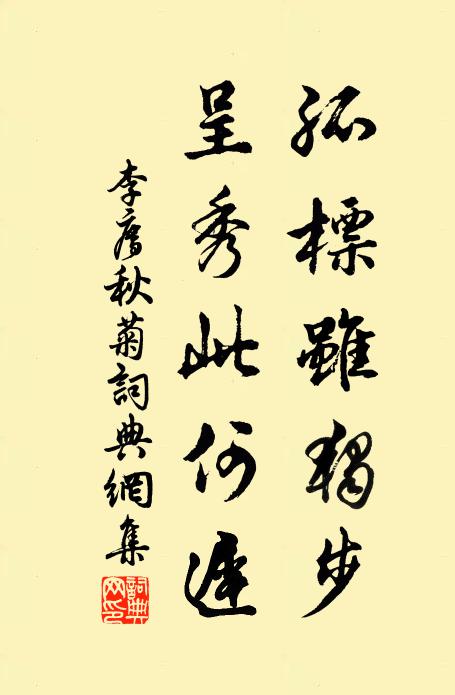 孤標雖獨步
呈秀此何遲
李秋菊詞典網集
詞典
网印